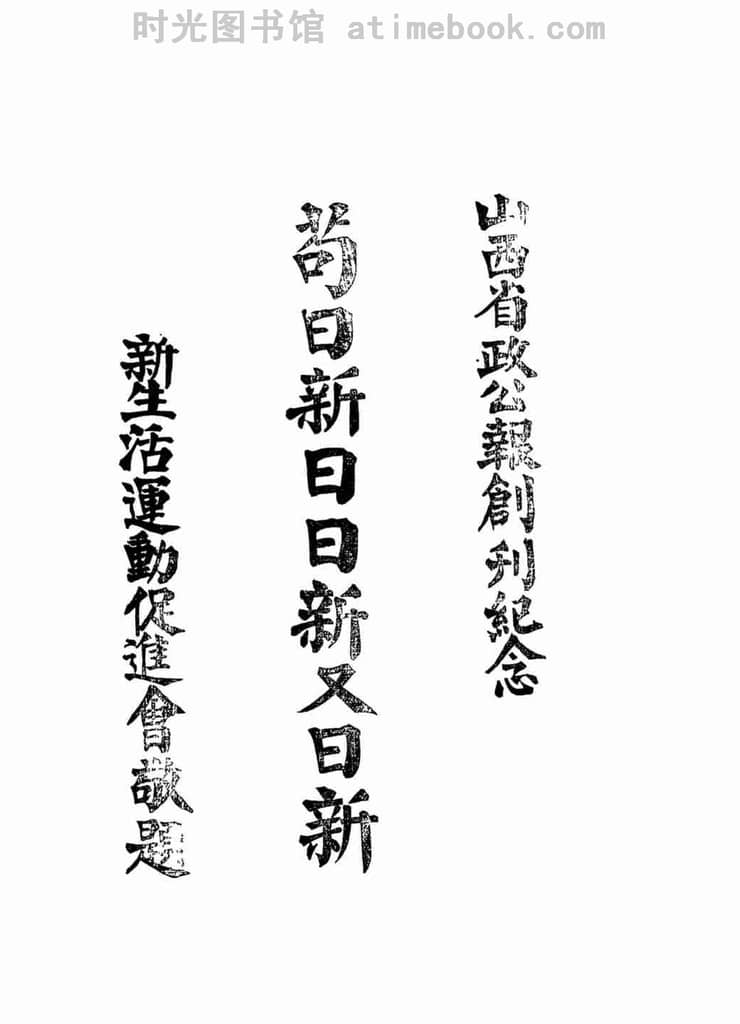 时光图书馆 atimebook.com
山西省政公報創刊紀念
苟日新日日新又日新
新生活運動促進會敬題